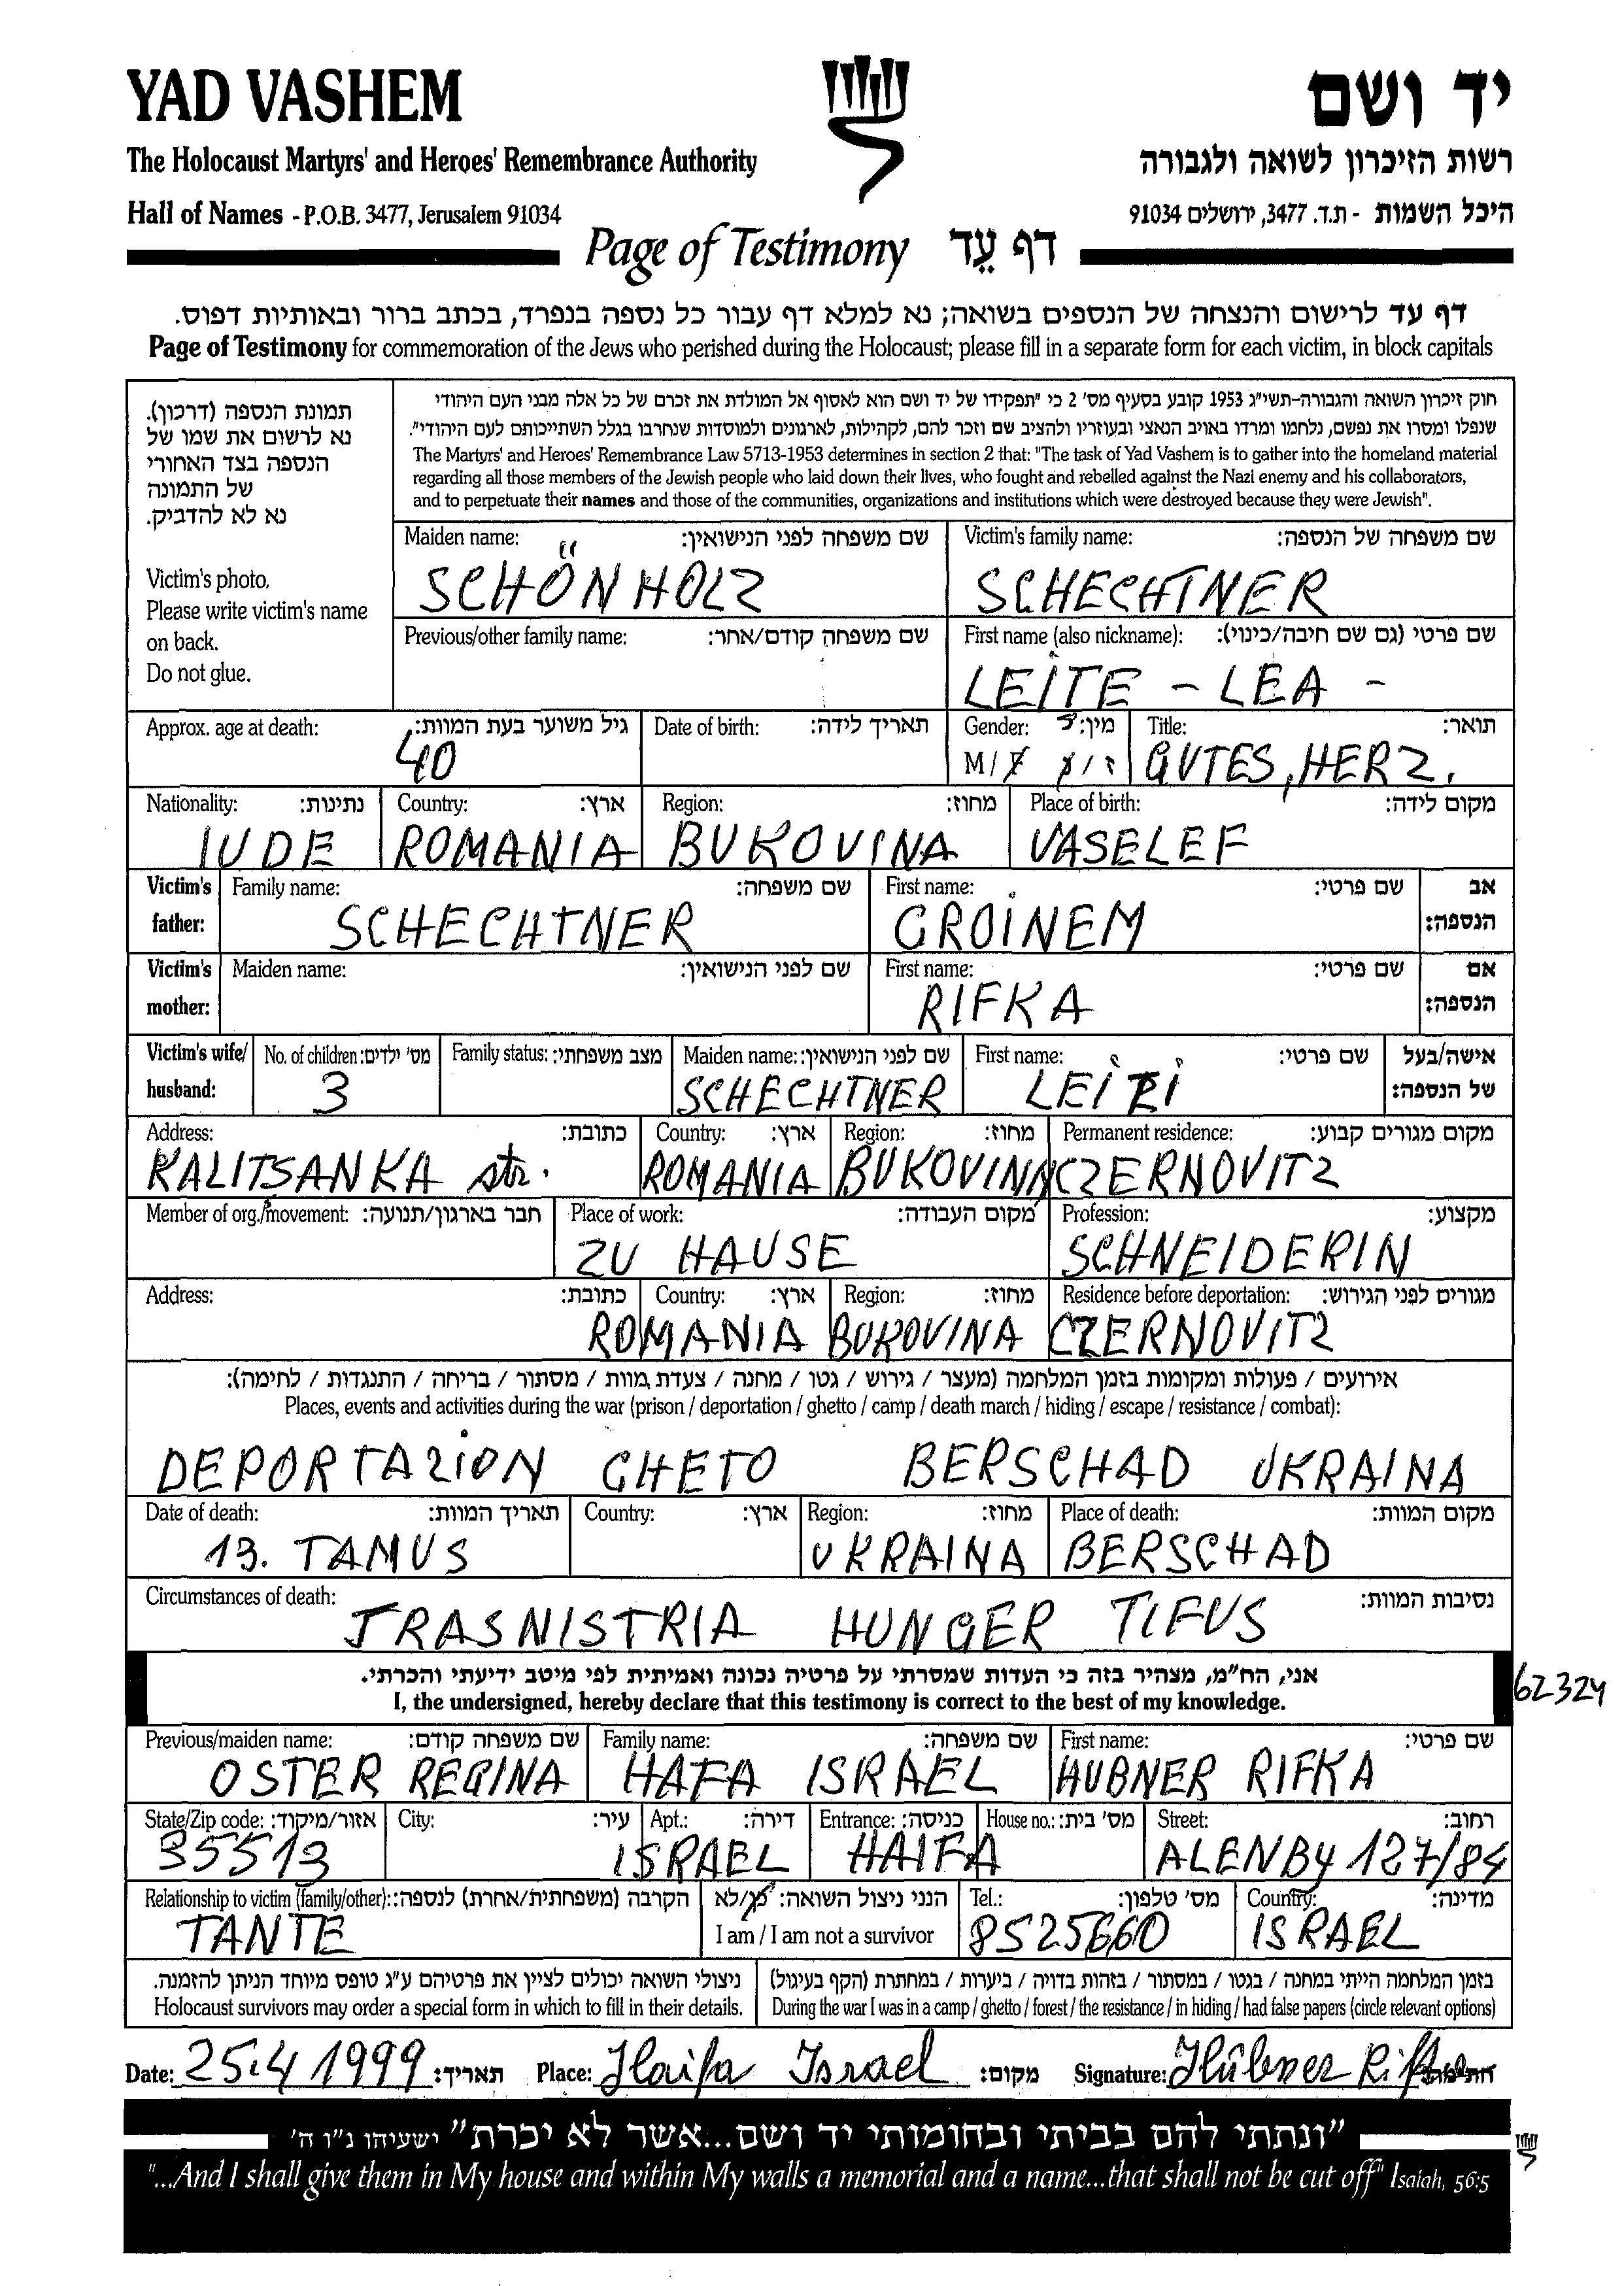 YAD VASHEM
יד ושם
The Holocaust Martyrs' and Heroes' Remembrance Authority
רשות הזיכרון לשואה ולגבורה
Hall of Names - P.O.B. 3477, Jerusalem 91034
היכל השמות - ת.ד. 3477, ירושלים 91034
Page of Testimony דף עֵד
דף עד לרישום והנצחה של הנספים בשואה; נא למלא דף עבור כל נספה בנפרד, בכתב ברור ובאותיות דפוס.
Page of Testimony for commemoration of the Jews who perished during the Holocaust; please fill in a separate form for each victim, in block capitals
תמונת הנספה (דרכון).
נא לרשום את שמו של
הנספה בצד האחורי
של התמונה
נא לא להדביק.
Victim's photo.
Please write victim's name
on back.
Do not glue.
חוק זיכרון השואה והגבורה-תשי"ג 1953 קובע בסעיף מס' 2 כי "תפקידו של יד ושם הוא לאסוף אל המולדת את זכרם של כל אלה מבני העם היהודי
שנפלו ומסרו את נפשם, נלחמו ומרדו באויב הנאצי ובעוזריו ולהציב שם וזכר להם, לקהילות, לארגונים ולמוסדות שנחרבו בגלל השתייכותם לעם היהודי".
The Martyrs' and Heroes' Remembrance Law 5713-1953 determines in section 2 that: "The task of Yad Vashem is to gather into the homeland material
regarding all those members of the Jewish people who laid down their lives, who fought and rebelled against the Nazi enemy and his collaborators,
and to perpetuate their names and those of the communities, organizations and institutions which were destroyed because they were Jewish".
Maiden name: שם משפחה לפני הנישואין: Victim's family name: שם משפחה של הנספה:
SCHÖNHOLZ SCHECHTNER
Previous/other family name: שם משפחה קודם/אחר: First name (also nickname): שם פרטי (גם שם חיבה/כינוי):
LEITE - LEA -
Approx. age at death: גיל משוער בעת המוות: Date of birth: תאריך לידה: Gender: מין: Title: תואר:
40 M / F ז / נ GUTES, HERZ.
Nationality: נתינות: Country: ארץ: Region: מחוז: Place of birth: מקום לידה:
IUDE ROMANIA BUKOVINA VASELEF
Victim's father: Family name: שם משפחה: First name: שם פרטי: אב הנספה:
SCHECHTNER GROINEM
Victim's mother: Maiden name: שם לפני הנישואין: First name: שם פרטי: אם הנספה:
RIFKA
Victim's wife/ husband: No. of children: מס' ילדים: Family status: מצב משפחתי: Maiden name: שם לפני הנישואין: First name: שם פרטי: אישה/בעל של הנספה:
3 SCHECHTNER
Address: כתובת: Country: ארץ: Region: מחוז: Permanent residence: מקום מגורים קבוע:
KALITSANKA str. ROMANIA BUKOVINA CZERNOVITZ
Member of org./movement: חבר בארגון/תנועה: Place of work: מקום העבודה: Profession: מקצוע:
ZU HAUSE SCHNEIDERIN
Address: כתובת: Country: ארץ: Region: מחוז: Residence before deportation: מגורים לפני הגירוש:
ROMANIA BUKOVINA CZERNOVITZ
אירועים / פעולות ומקומות בזמן המלחמה (מעצר / גירוש / גטו / מחנה / צעדת מוות / מסתור / בריחה / התנגדות / לחימה):
Places, events and activities during the war (prison / deportation / ghetto / camp / death march / hiding / escape / resistance / combat):
DEPORTAZION GHETO BERSCHAD UKRAINA
Date of death: תאריך המוות: Country: ארץ: Region: מחוז: Place of death: מקום המוות:
13. TAMUS UKRAINA BERSCHAD
Circumstances of death: נסיבות המוות:
TRASNISTRIA HUNGER TIFUS
אני, הח"מ, מצהיר בזה כי העדות שמסרתי על פרטיה נכונה ואמיתית לפי מיטב ידיעתי והכרתי.
I, the undersigned, hereby declare that this testimony is correct to the best of my knowledge.
62324
Previous/maiden name: שם משפחה קודם: Family name: שם משפחה: First name: שם פרטי:
OSTER REGINA HAFA ISRAEL HUBNER RIFKA
State/Zip code: אזור/מיקוד: City: עיר: Apt.: דירה: Entrance: כניסה: House no.: מס' בית: Street: רחוב:
35513 ISRAEL HAIFA ALENBy 127/84
Relationship to victim (family/other): הקרבה (משפחתית/אחרת) לנספה: הנני ניצול השואה: כן/לא Tel.: מס' טלפון: Country: מדינה:
TANTE I am / I am not a survivor 8525660 ISRAEL
ניצולי השואה יכולים לציין את פרטיהם ע"ג טופס מיוחד הניתן להזמנה. בזמן המלחמה הייתי במחנה / בגטו / במסתור / בזהות בדויה / ביערות / במחתרת (הקף בעיגול)
Holocaust survivors may order a special form in which to fill in their details. During the war I was in a camp / ghetto / forest / the resistance / in hiding / had false papers (circle relevant options)
Date: 25.4 1999 תאריך: Place: Haifa Israel מקום: Signature: Hübner Rifka
"ונתתי להם בביתי ובחומותי יד ושם...אשר לא יכרת" ישעיהו נ"ו ה'
"...And I shall give them in My house and within My walls a memorial and a name...that shall not be cut off" Isaiah, 56:5